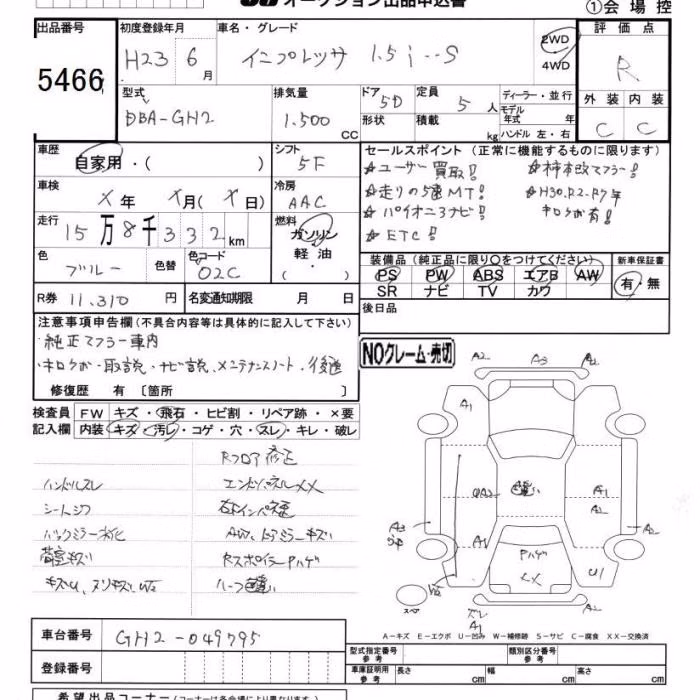 オークション出品申込書
①会場控
出品番号 初度登録年月 車名・グレード 評価点
5466 H23 6月 インプレッサ 1.5 i-S 2WD 4WD R
型式 排気量 ドア 定員 ディーラー・並行 外装 内装
DBA-GH2 1.500 CC 5D 5人 モデル年式 年式 C C
形状 積載 kg ハンドル 左・右
車歴 シフト セールスポイント(正常に機能するものに限ります)
自家用・( ) 5F ☆ユーザー買取! ☆柿本改マフラー!
車検 冷房 ☆走りの5速MT! ☆H30.R2-R7年
X年 X月(X日) AAC ☆パイオニアナビ! キロクボ有!
走行 燃料 ☆ETC!
15万8千332km ガソリン 軽油 ・( )
色 色替 色コード 装備品(純正品に限り○をつけてください) 新車保証書
ブルー 02C PS PW ABS エアB AW 有・無
SR ナビ TV カワ
R券 11.310円 名変通知期限 月 日 後日品
注意事項申告欄(不具合内容等は具体的に記入して下さい)
・純正マフラー車内
・キロクボ・取説・ナビ説、メンテナンスノート、後送
修復歴 有 〔箇所 〕
NOクレーム・売切
検査員 FW キズ・飛石・ヒビ割・リペア跡・×要
記入欄 内装 キズ・汚レ・コゲ・穴・スレ・キレ・破レ
Rフロア修正
ハンドルスレ エンドパネルXX
シートシワ
バックミラー劣化 AW、ドアミラーキズ
荷室キズ RスポイラーPハゲ
ルーフ色違い
A2 A3 A2
A1
A2 色違い A1
A2
A3 A1 A2
Pハゲ
XX U1
スペア スレ
A1
A-キズ E-エクボ U-凹み W-補修跡 S-サビ C-腐食 XX-交換済
車台番号 GH2-049795
型式指定番号 参考 類別区分番号 参考
登録番号 車庫証明用 参考 長さ cm 幅 cm 高さ cm
希望出品コーナー